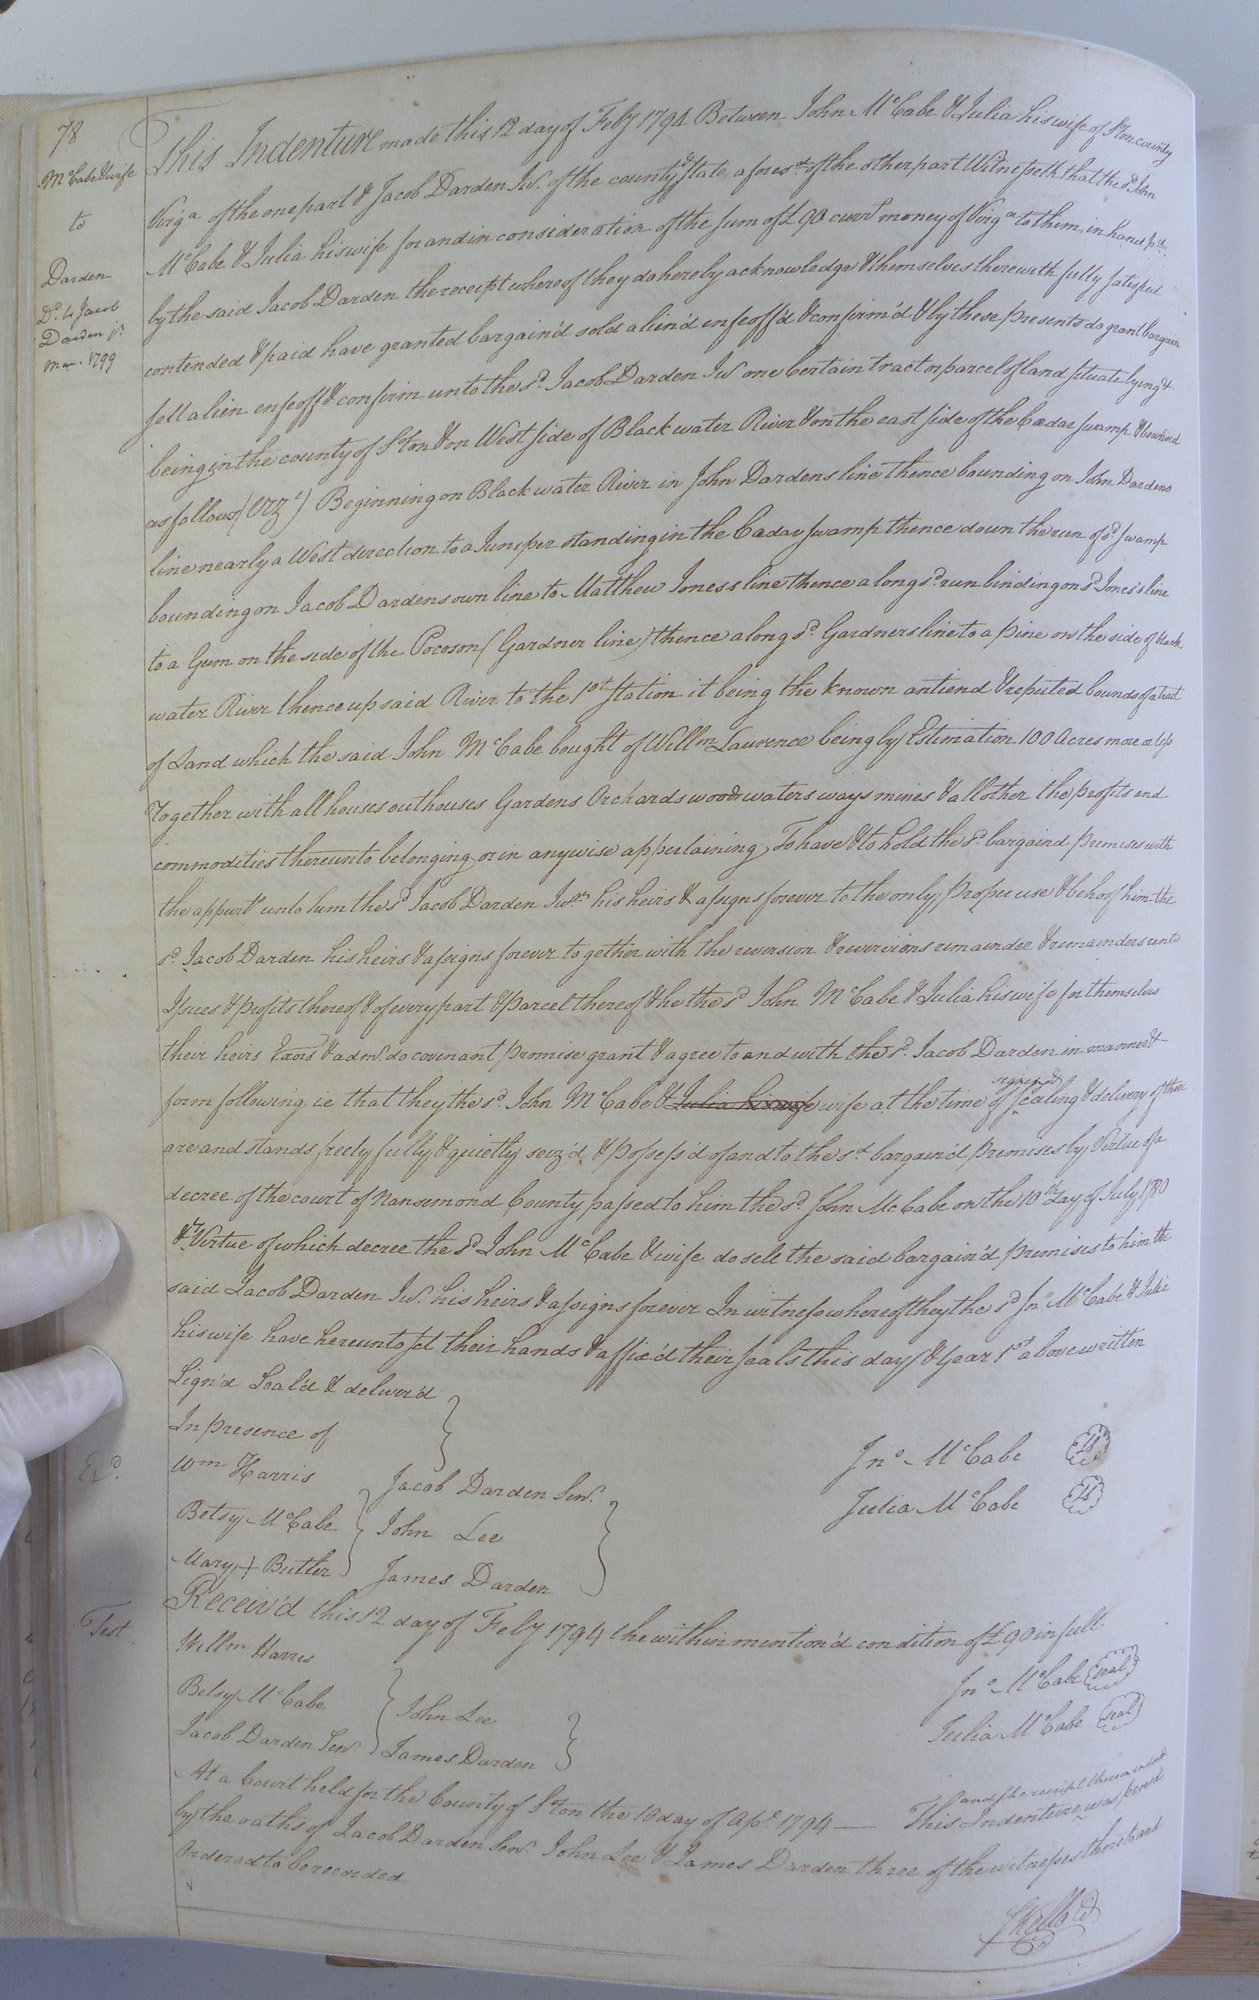 78
McCabe & wife
to
Darden
Dd. to Jacob
Darden jr.
Mar. 1799
This Indenture made this 12 day of Feby 1794 Between John McCabe & Julia his wife of S.ton county
Virga of the one part & Jacob Darden Junr. of the county & State aforesd. of the other part Witnesseth that the sd. John
McCabe & Julia his wife for and in consideration of the sum of £90 currt money of Virga to them in hand pd.
by the said Jacob Darden the receipt whereof they do hereby acknowledge & themselves therewith fully satisfied
contended & paid have granted bargain'd sold alien'd enfeoff'd & confirm'd & by these presents do grant bargain
sell alien enfeoff & confirm unto the sd. Jacob Darden Junr one certain tract or parcel of land situate lying &
being in the county of S.ton & on West side of Black water River & on the east side of the Cadar swamp & bounded
as follows (Vizt) Beginning on Black water River in John Dardens line thence bounding on John Dardens
line nearly a West direction to a Juneper standing in the Cadar swamp thence down the run of sd. swamp
bounding on Jacob Dardens own line to Matthew Jones's line thence along sd. run binding on sd. Jones's line
to a Gum on the side of the Pocoson (Gardner line) thence along sd. Gardners line to a pine on the side of black
water River thence up said River to the 1st station it being the known antiend & reputed bounds of a tract
of Land which the said John McCabe bought of Willm Lawrence being by Estimation 100 Acres more or less
Together with all houses outhouses Gardens Orchards woods waters ways mines & all other the profits and
commodities thereunto belonging or in anywise appertaining, To have & to hold the sd. bargaind premises with
the appurts unto him the sd. Jacob Darden Junr his heirs & assigns forever to the only proper use & behoof him the
sd. Jacob Darden his heirs & assigns forever together with the reversion & reversions remainder & remainders rents
Issues & profits thereof & of every part & parcel thereof & he the sd. John McCabe & Julia his wife for themselves
their heirs Exors & admrs. do covenant promise grant & agree to and with the sd. Jacob Darden in manner &
form following ie that they the sd. John McCabe & Julia his wife wife at the time of signing & sealing & delivery of these
are and stands freely fully & quietly seiz'd & possess'd of and to the sd. bargain'd premises by virtue of a
decree of the court of Nansemond County passed to him the sd. John McCabe on the 10th Day of July 1780
& Virtue of which decree the sd. John McCabe & wife do sell the said bargain'd premises to him the
said Jacob Darden Junr. his heirs & assigns forever In witness whereof they the sd. Jno McCabe & Julia
his wife have hereunto set their hands & affix'd their seals this day & Year 1st above written
Sign'd Seal'd & deliver'd
In presence of
Wm Harris
Jacob Darden Senr.
Betsy McCabe
John Lee
Mary + Butler
James Darden
Jno. McCabe LS
Julia McCabe LS
Exd.
Receiv'd this 12 day of Feby 1794 the within mention'd condition of £90 in full.
Test
Willm Harris
Betsy McCabe
John Lee
Jacob Darden Senr
James Darden
Jno. McCabe seal
Julia McCabe seal
At a Court held for the County of S.ton the 10 day of Apl. 1794 — This Indenture and the receipt thereon endorsd was proved
by the oaths of Jacob Darden Senr. John Lee & James Darden three of the witnesses thereto and
Ordered to be recorded